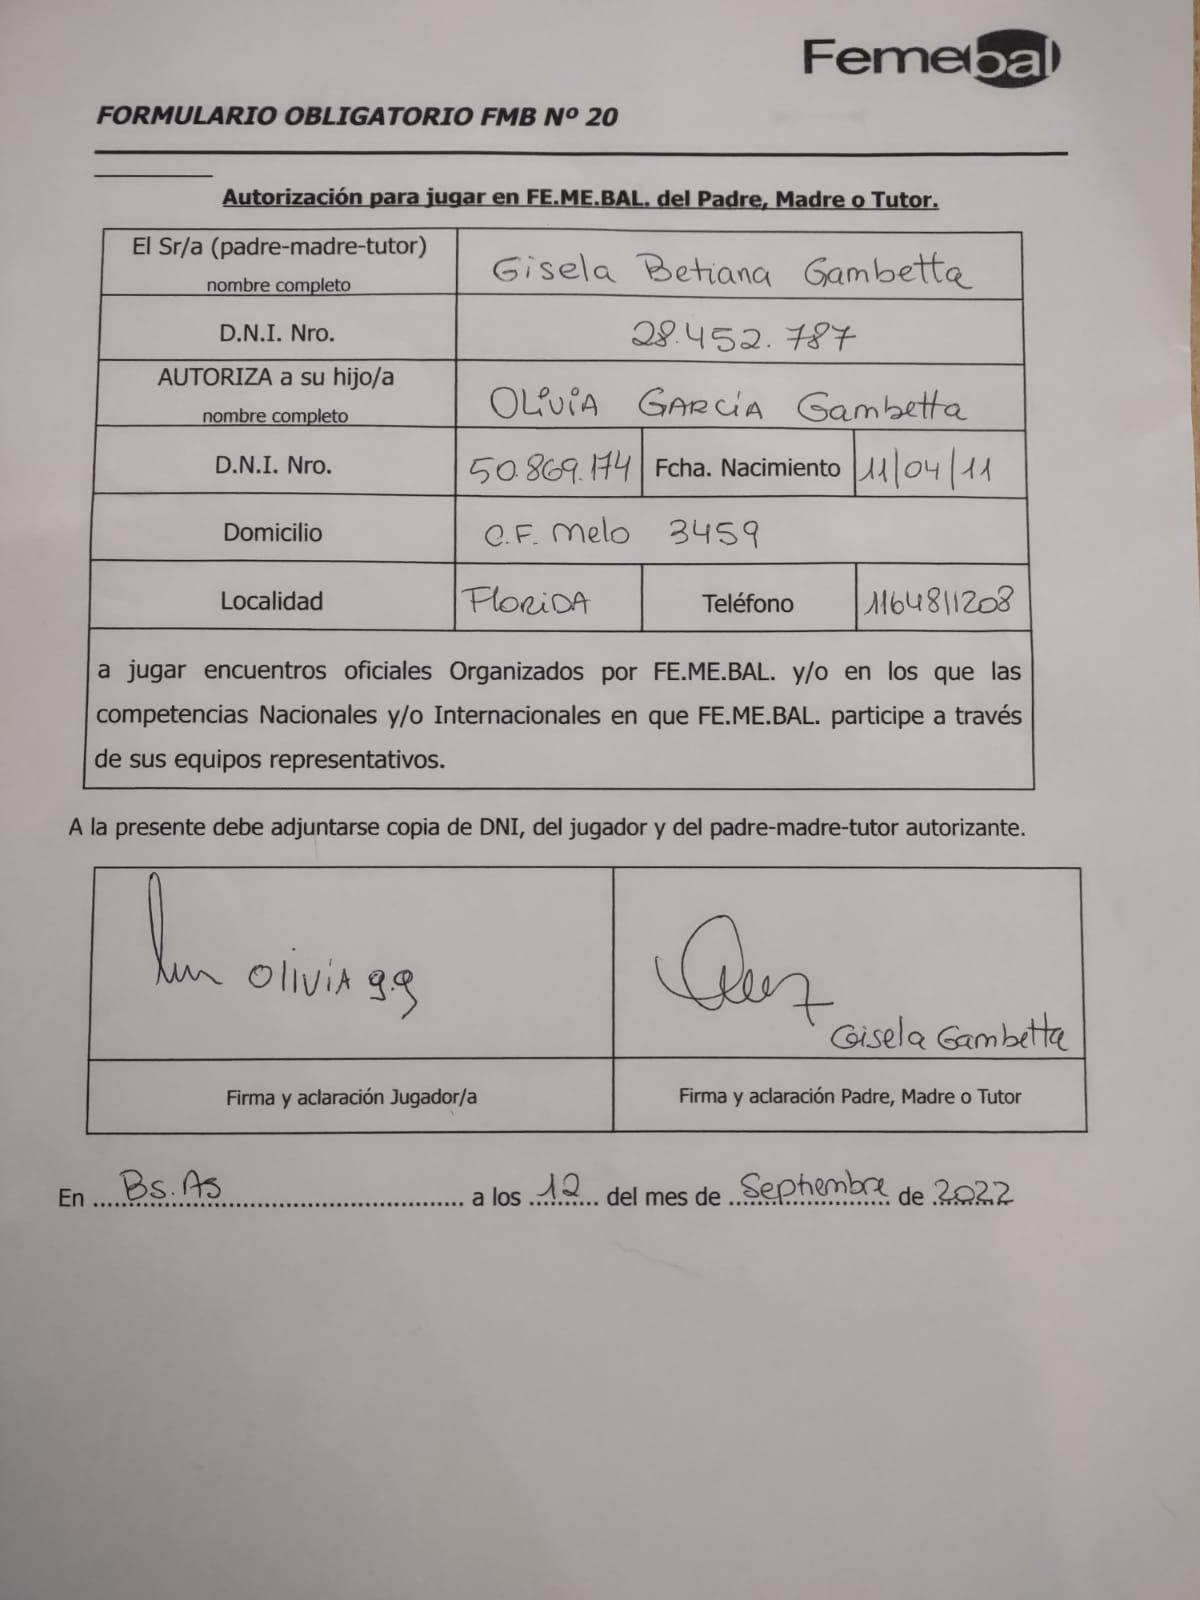 Femebal
FORMULARIO OBLIGATORIO FMB Nº 20
Autorización para jugar en FE.ME.BAL. del Padre, Madre o Tutor.
El Sr/a (padre-madre-tutor)
nombre completo
Gisela Betiana Gambetta
D.N.I. Nro.
28.452.787
AUTORIZA a su hijo/a
nombre completo
OLiViA GARCÍA Gambetta
D.N.I. Nro.
50.869.174
Fcha. Nacimiento
11/04/11
Domicilio
C.F. Melo 3459
Localidad
FLORiDA
Teléfono
1164811208
a jugar encuentros oficiales Organizados por FE.ME.BAL. y/o en los que las
competencias Nacionales y/o Internacionales en que FE.ME.BAL. participe a través
de sus equipos representativos.
A la presente debe adjuntarse copia de DNI, del jugador y del padre-madre-tutor autorizante.
OliViA g.g
Gisela Gambetta
Firma y aclaración Jugador/a
Firma y aclaración Padre, Madre o Tutor
En Bs. As a los 12 del mes de Septiembre de 2022